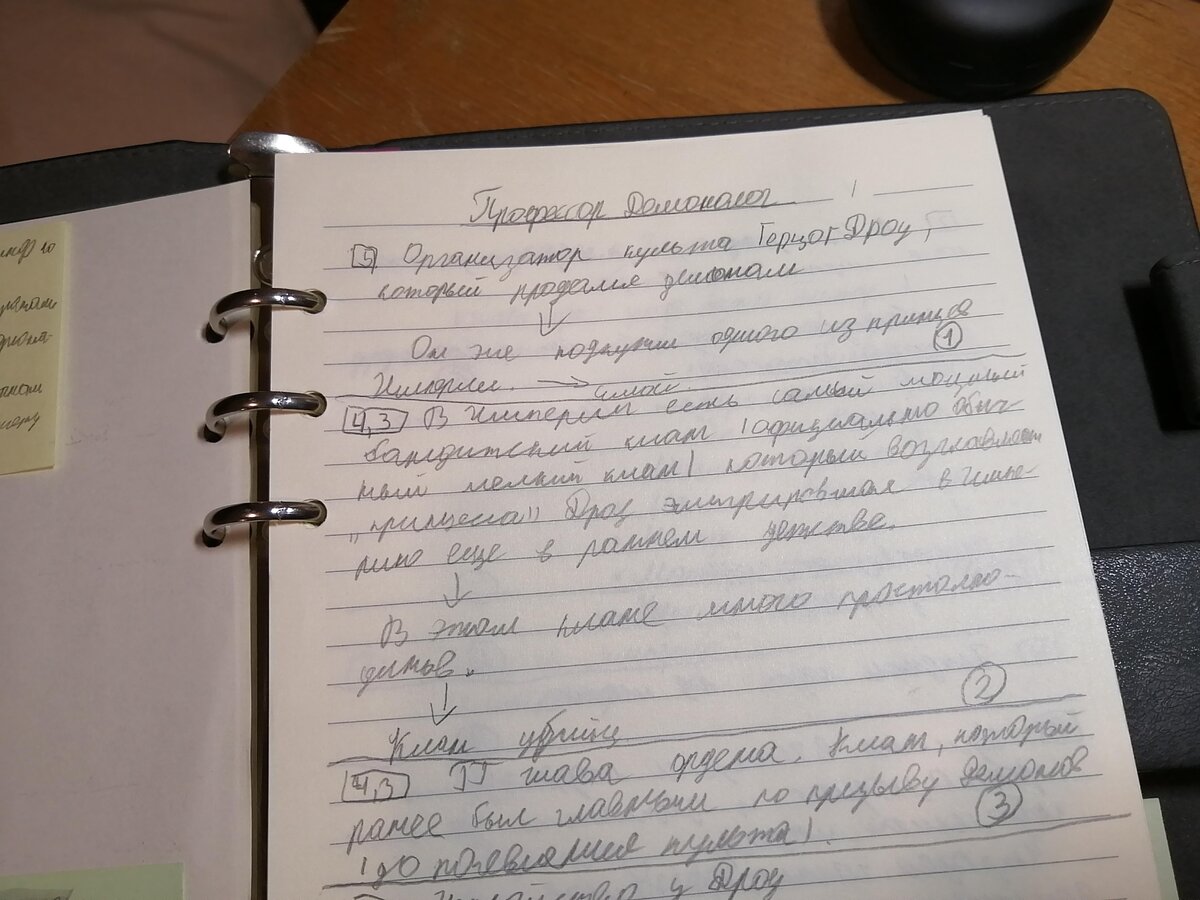 Профессор Демонолог
5 Организатор культа Герцог Дроу,
который продался демонам
Он же подкупил одного из принцев
Империи. → 1
4,3 В Империи есть самый мощный
бандитский клан (официально обыч-
ный мелкий клан) который возглавляет
"принцесса" Дроу эмигрировшая в Импе-
рию еще в раннем детстве.
В этом клане много простолю-
динов.
2
Клан убийц
4,3 ГГ глава ордена. Клан, который
ранее был главным по призыву демонов
(до появления культа). 3
у Дроу